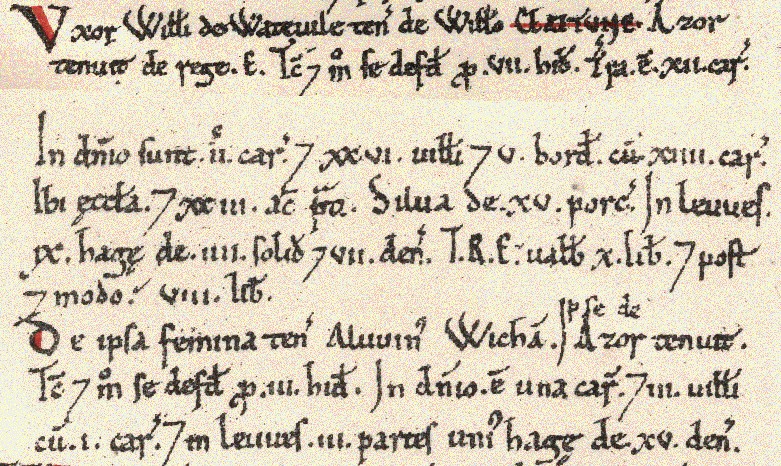 Vxor Willi de Wateuile ten̄ de Willo Cloninctune. Azor
tenuit de rege. E. Tc̄ ⁊ m̊ se defd̄ ꝓ .vii. hid̄. Tr̄a. ē. xii. car̄.
In dn̄io sunt .ii. car̄. ⁊ xxvi. uilłi ⁊ v. bord̄. cū .xiiii. car̄.
Ibi ęccła. ⁊ xxiii. ac̄ p̄a. Silua de .xv. porc̄. In leuues.
ix. hagę de .iiii. solid̄ ⁊ vii. den̄. T.R.E. ualb̄ x. lib̄. ⁊ post
⁊ modo. viii. lib̄.
De ipsa femina ten̄ Aluuin᷒ Wichā. Ipse de
Azor tenuit.
Tc̄ ⁊ m̊ se defd̄ ꝓ .iii. hid̄. In dn̄io. ē una car̄. ⁊ iii. uilłi
cū .i. car̄. ⁊ in leuues .iii. partes uni᷒ hagę de .xv. den̄.